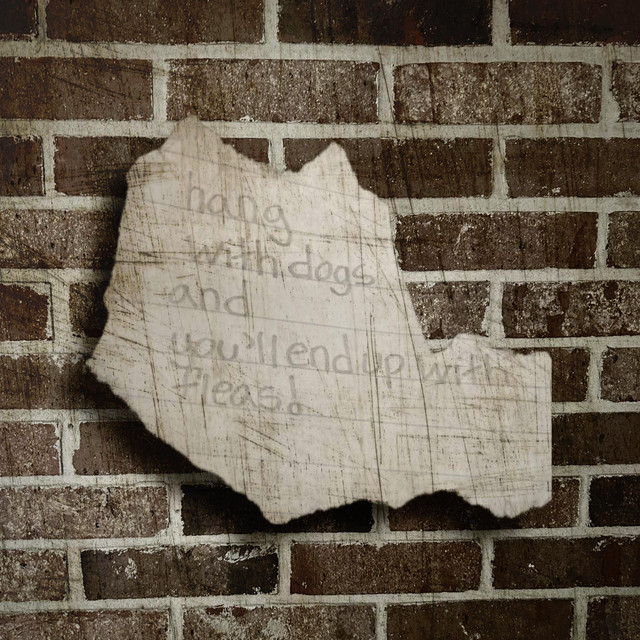 hang
with dogs
and
you'll end up with
fleas!